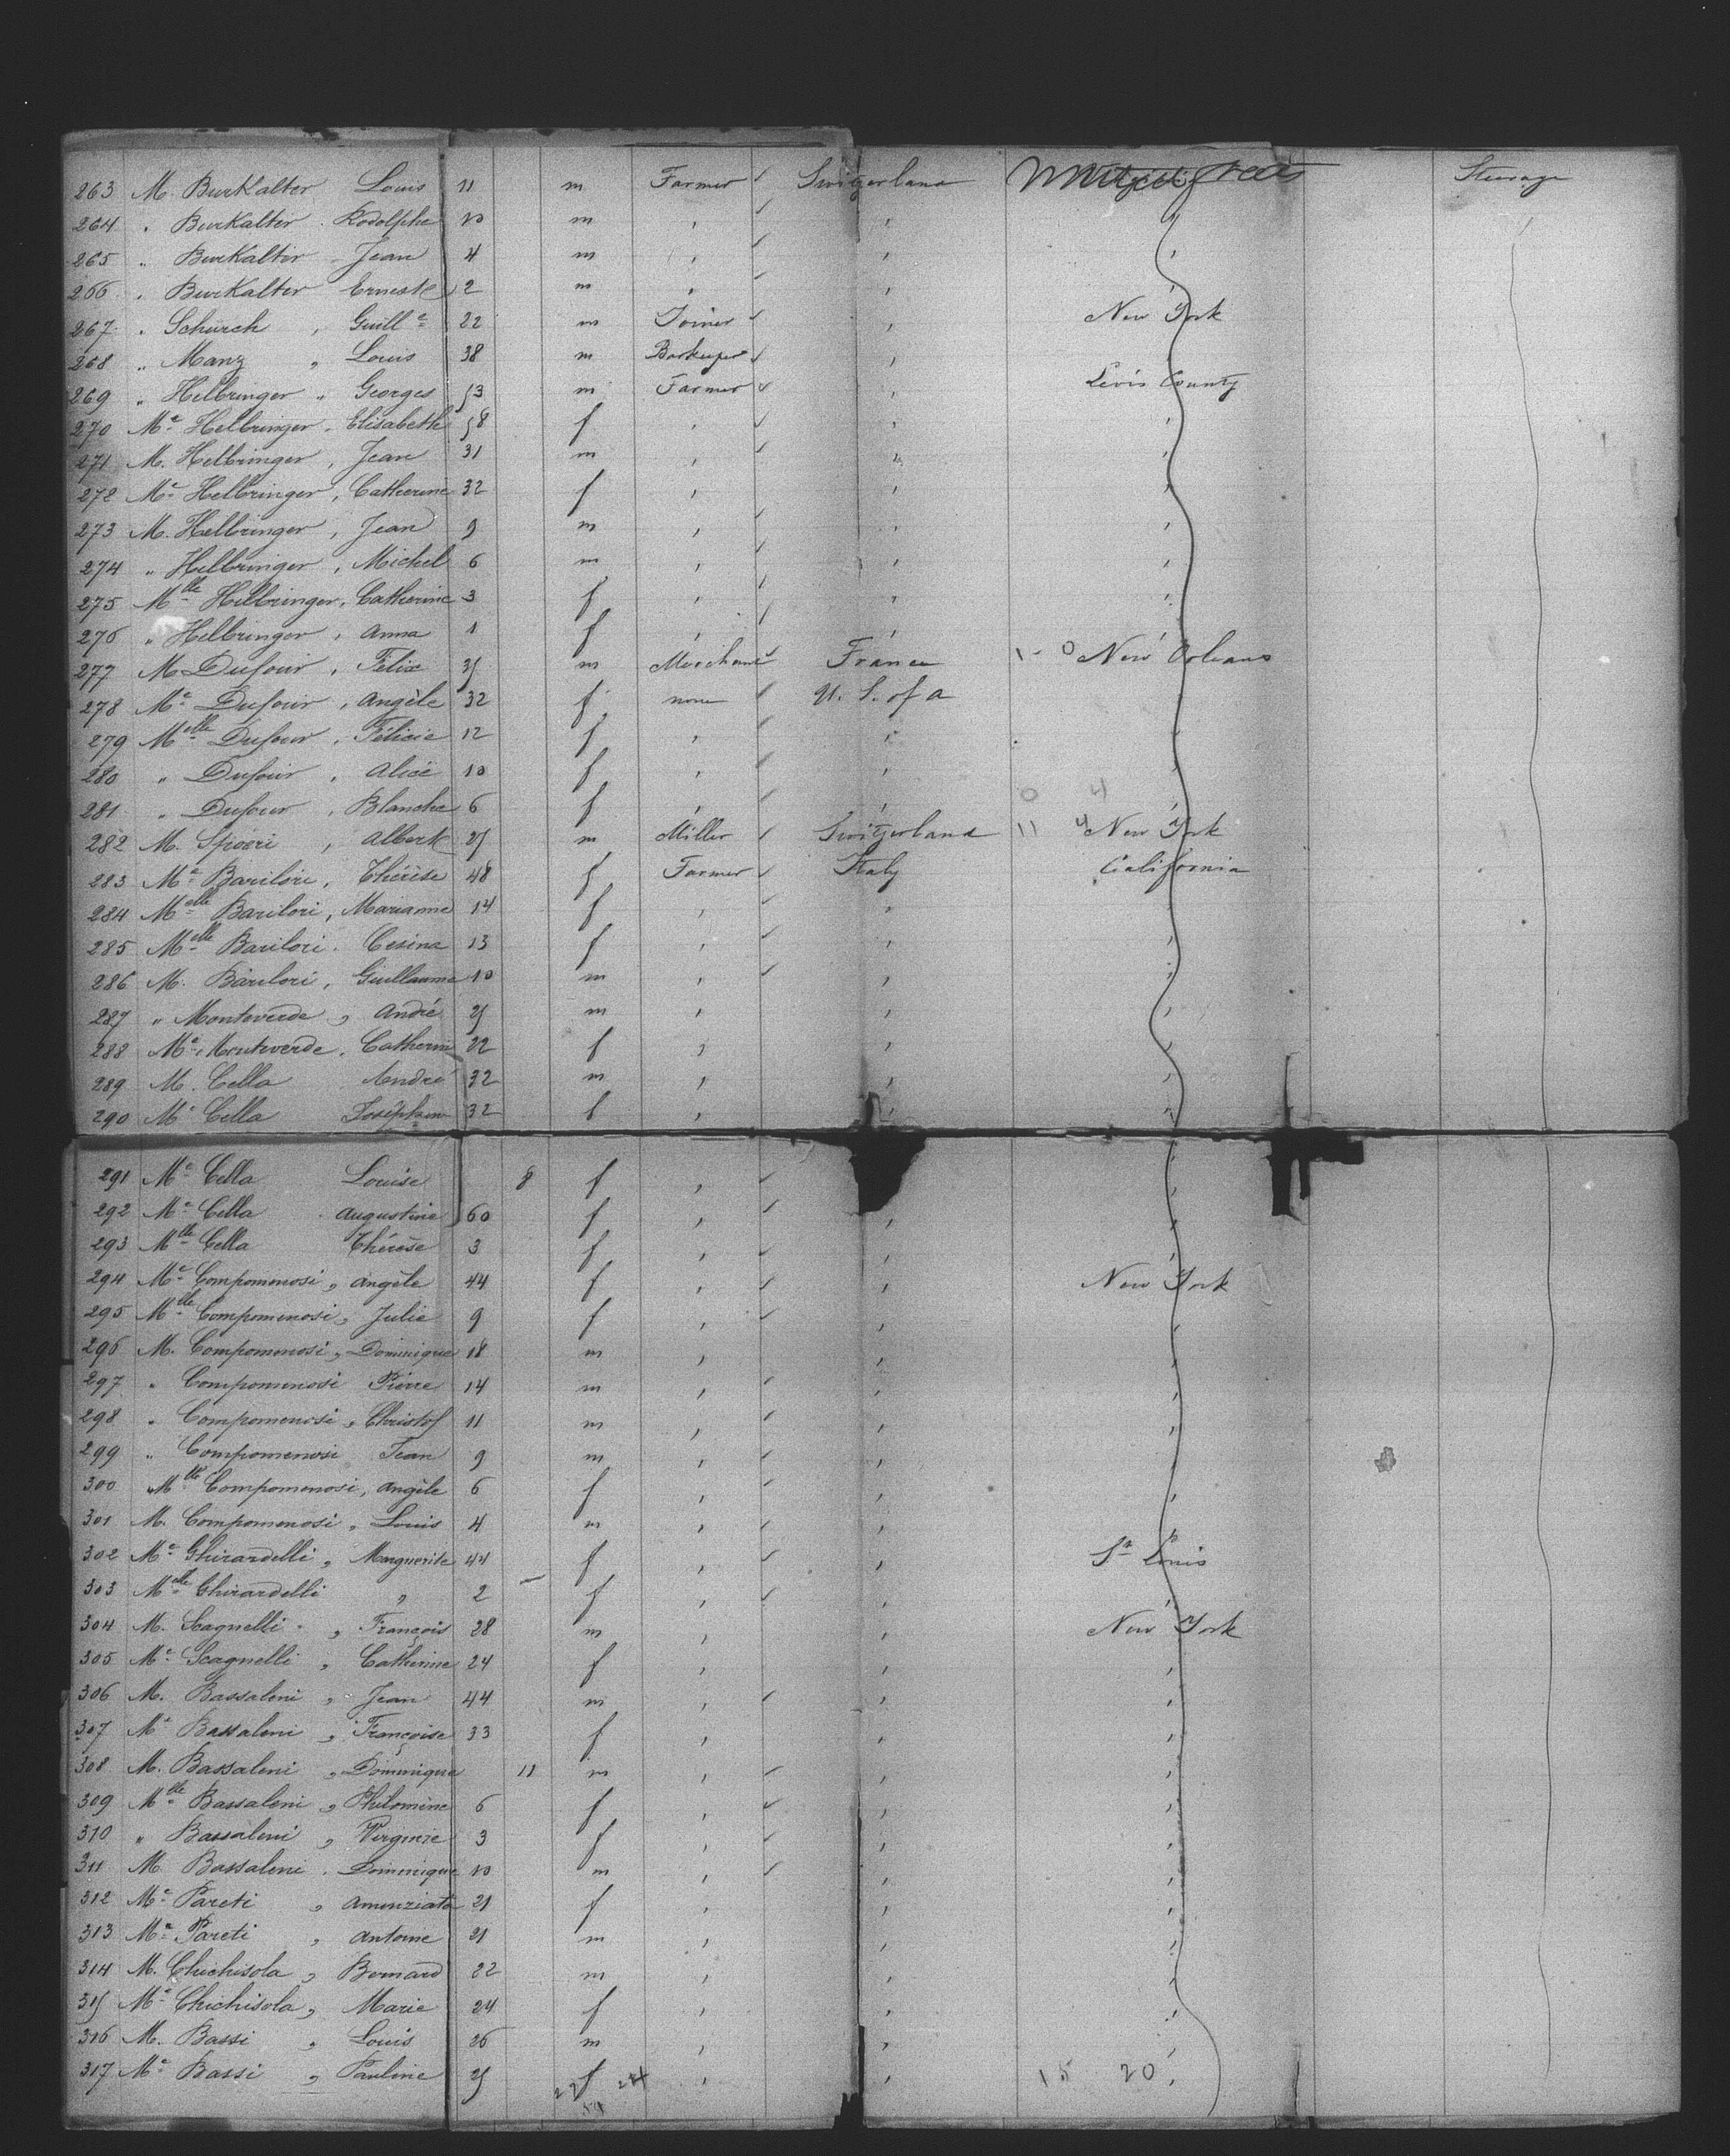 263 M. Burkalter Louis 11 m Farmer Switzerland Steerage
264 " Burkalter Rodolphe 10 m "
265 " Burkalter Jean 4 m "
266 " Burkalter Ernest 2 m "
267 " Schürch , Guill.e 22 m Joiner " New York
268 " Manz , Louis 38 m Barkeeper "
269 " Helbringer , Georges 53 m Farmer " Levis County
270 Me Helbringer , Elisabeth 58 f " "
271 M. Helbringer , Jean 31 m " "
272 Me Helbringer , Catherine 32 f " "
273 M. Helbringer , Jean 9 m " "
274 " Helbringer , Michel 6 m " "
275 Mlle Helbringer , Catherine 3 f " "
276 " Helbringer , Anna 1 f " "
277 M Dufour , Félix 35 m Merchant France 1 - 0 New Orleans
278 Me Dufour , Angèle 32 f none U. S. of a
279 Melle Dufour , Félicie 12 f " "
280 " Dufour , Alice 10 f " "
281 " Dufour , Blanche 6 f " " 0 4
282 M. Spoëri , Albert 25 m Miller Switzerland 11 4 New York
283 Me Barilori , Thérèse 48 f Farmer Italy California
284 Melle Barilori , Marianne 14 f " "
285 Melle Barilori . Cesina 13 f " "
286 M. Barilori , Guillaume 10 m " "
287 " Monteverde , André 25 m " "
288 Me Monteverde . Catherine 22 f " "
289 M. Cella André 32 m " "
290 Me Cella Joséphine 32 f " "
291 Me Cella Louise 8 f "
292 Me Cella Augustine 60 f " "
293 Mlle Cella Thérèse 3 f " "
294 Me Compomenosi , Angèle 44 f " " New York
295 Mlle Compomenosi , Julie 9 f " "
296 M. Compomenosi , Dominique 18 m " "
297 " Compomenosi Pierre 14 m " "
298 " Compomenosi , Christof 11 m " "
299 " Compomenosi Jean 9 m " "
300 Mlle Compomenosi , Angèle 6 f " "
301 M. Compomenosi , Louis 4 m " "
302 Me Ghirardelli , Marguerite 44 f " " St Louis
303 Melle Ghirardelli , 2 f " "
304 M. Scagnelli , François 28 m " " New York
305 Me Scagnelli , Catherine 24 f " "
306 M. Bassaleni , Jean 44 m " "
307 Me Bassaleni , Françoise 33 f " "
308 M. Bassaleni , Dominique 11 m " "
309 Mlle Bassaleni , Philomine 6 f " "
310 " Bassaleni , Virginie 3 f " "
311 M. Bassaleni . Dominique 10 m " "
312 Me Pareti , Amunziata 21 f " "
313 Me Pareti , Antoine 21 m " "
314 M. Chichisola , Bernard 22 m " "
315 Me Chichisola , Marie 24 f " "
316 M. Bassi , Louis 26 m " "
317 Me Bassi , Pauline 25 f " " 15 20